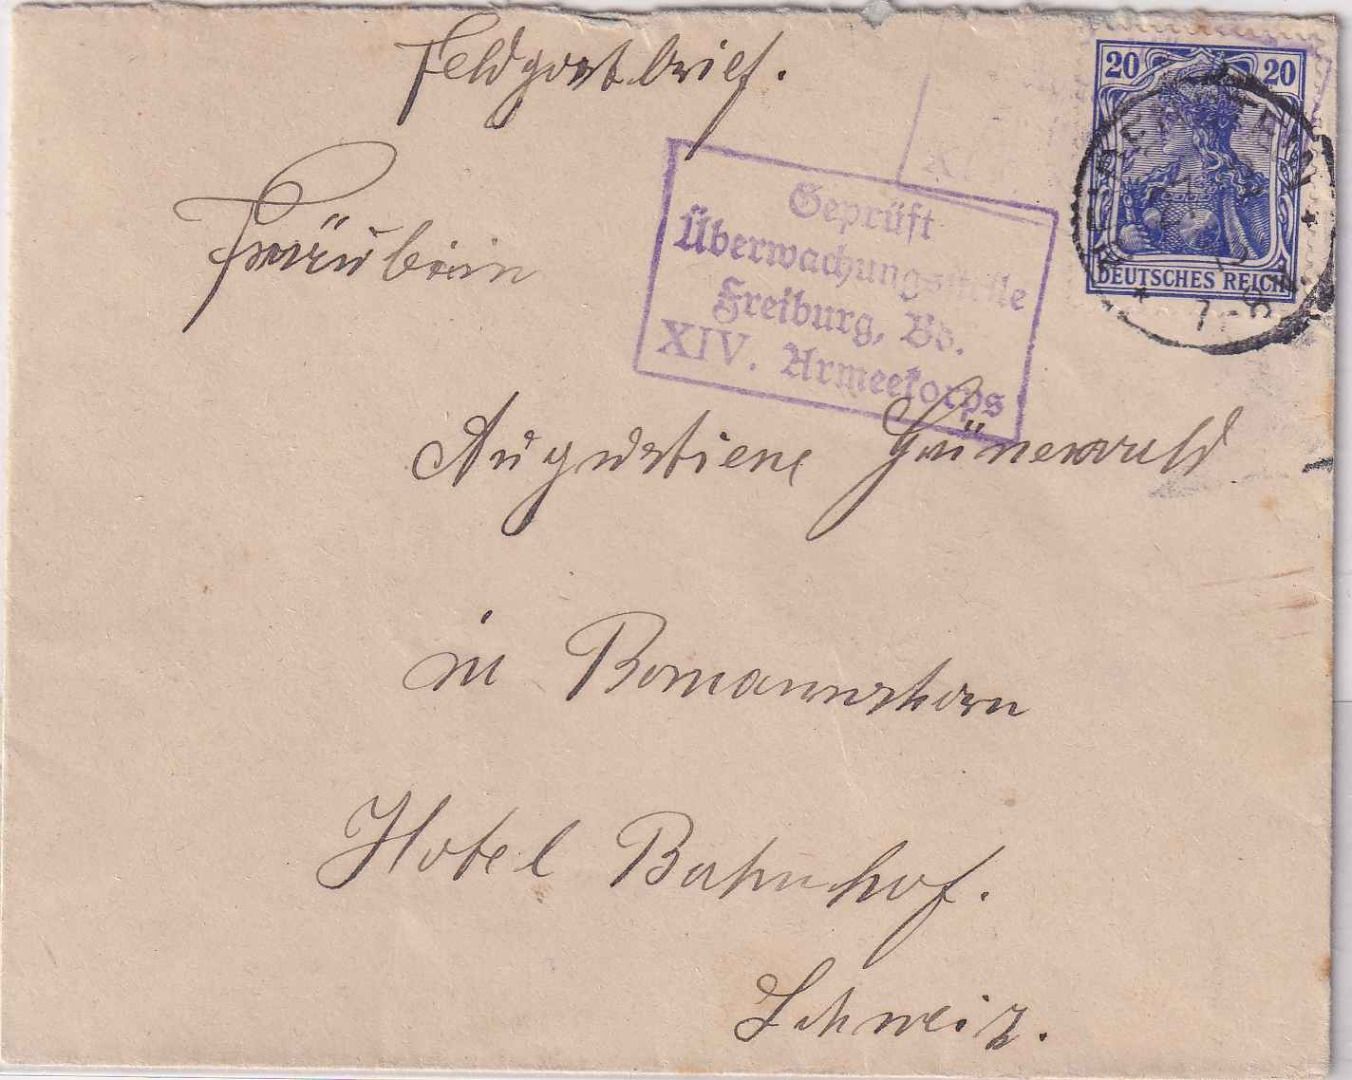 Feldpostbrief.
20 20
DEUTSCHES REICH
7-8
Geprüft
Überwachungsstelle
Freiburg, Bd.
XIV. Armeekorps
Fräulein
Augustiene Grünewald
in Romannshorn
Hotel Bahnhof.
Schweiz.